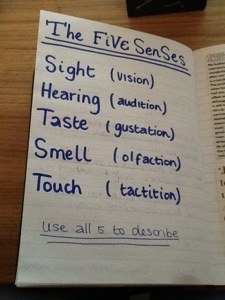 The FiVE SenSes
Sight (vision)
Hearing (audition)
Taste (gustation)
Smell (olfaction)
Touch (tactition)
Use all 5 to describe